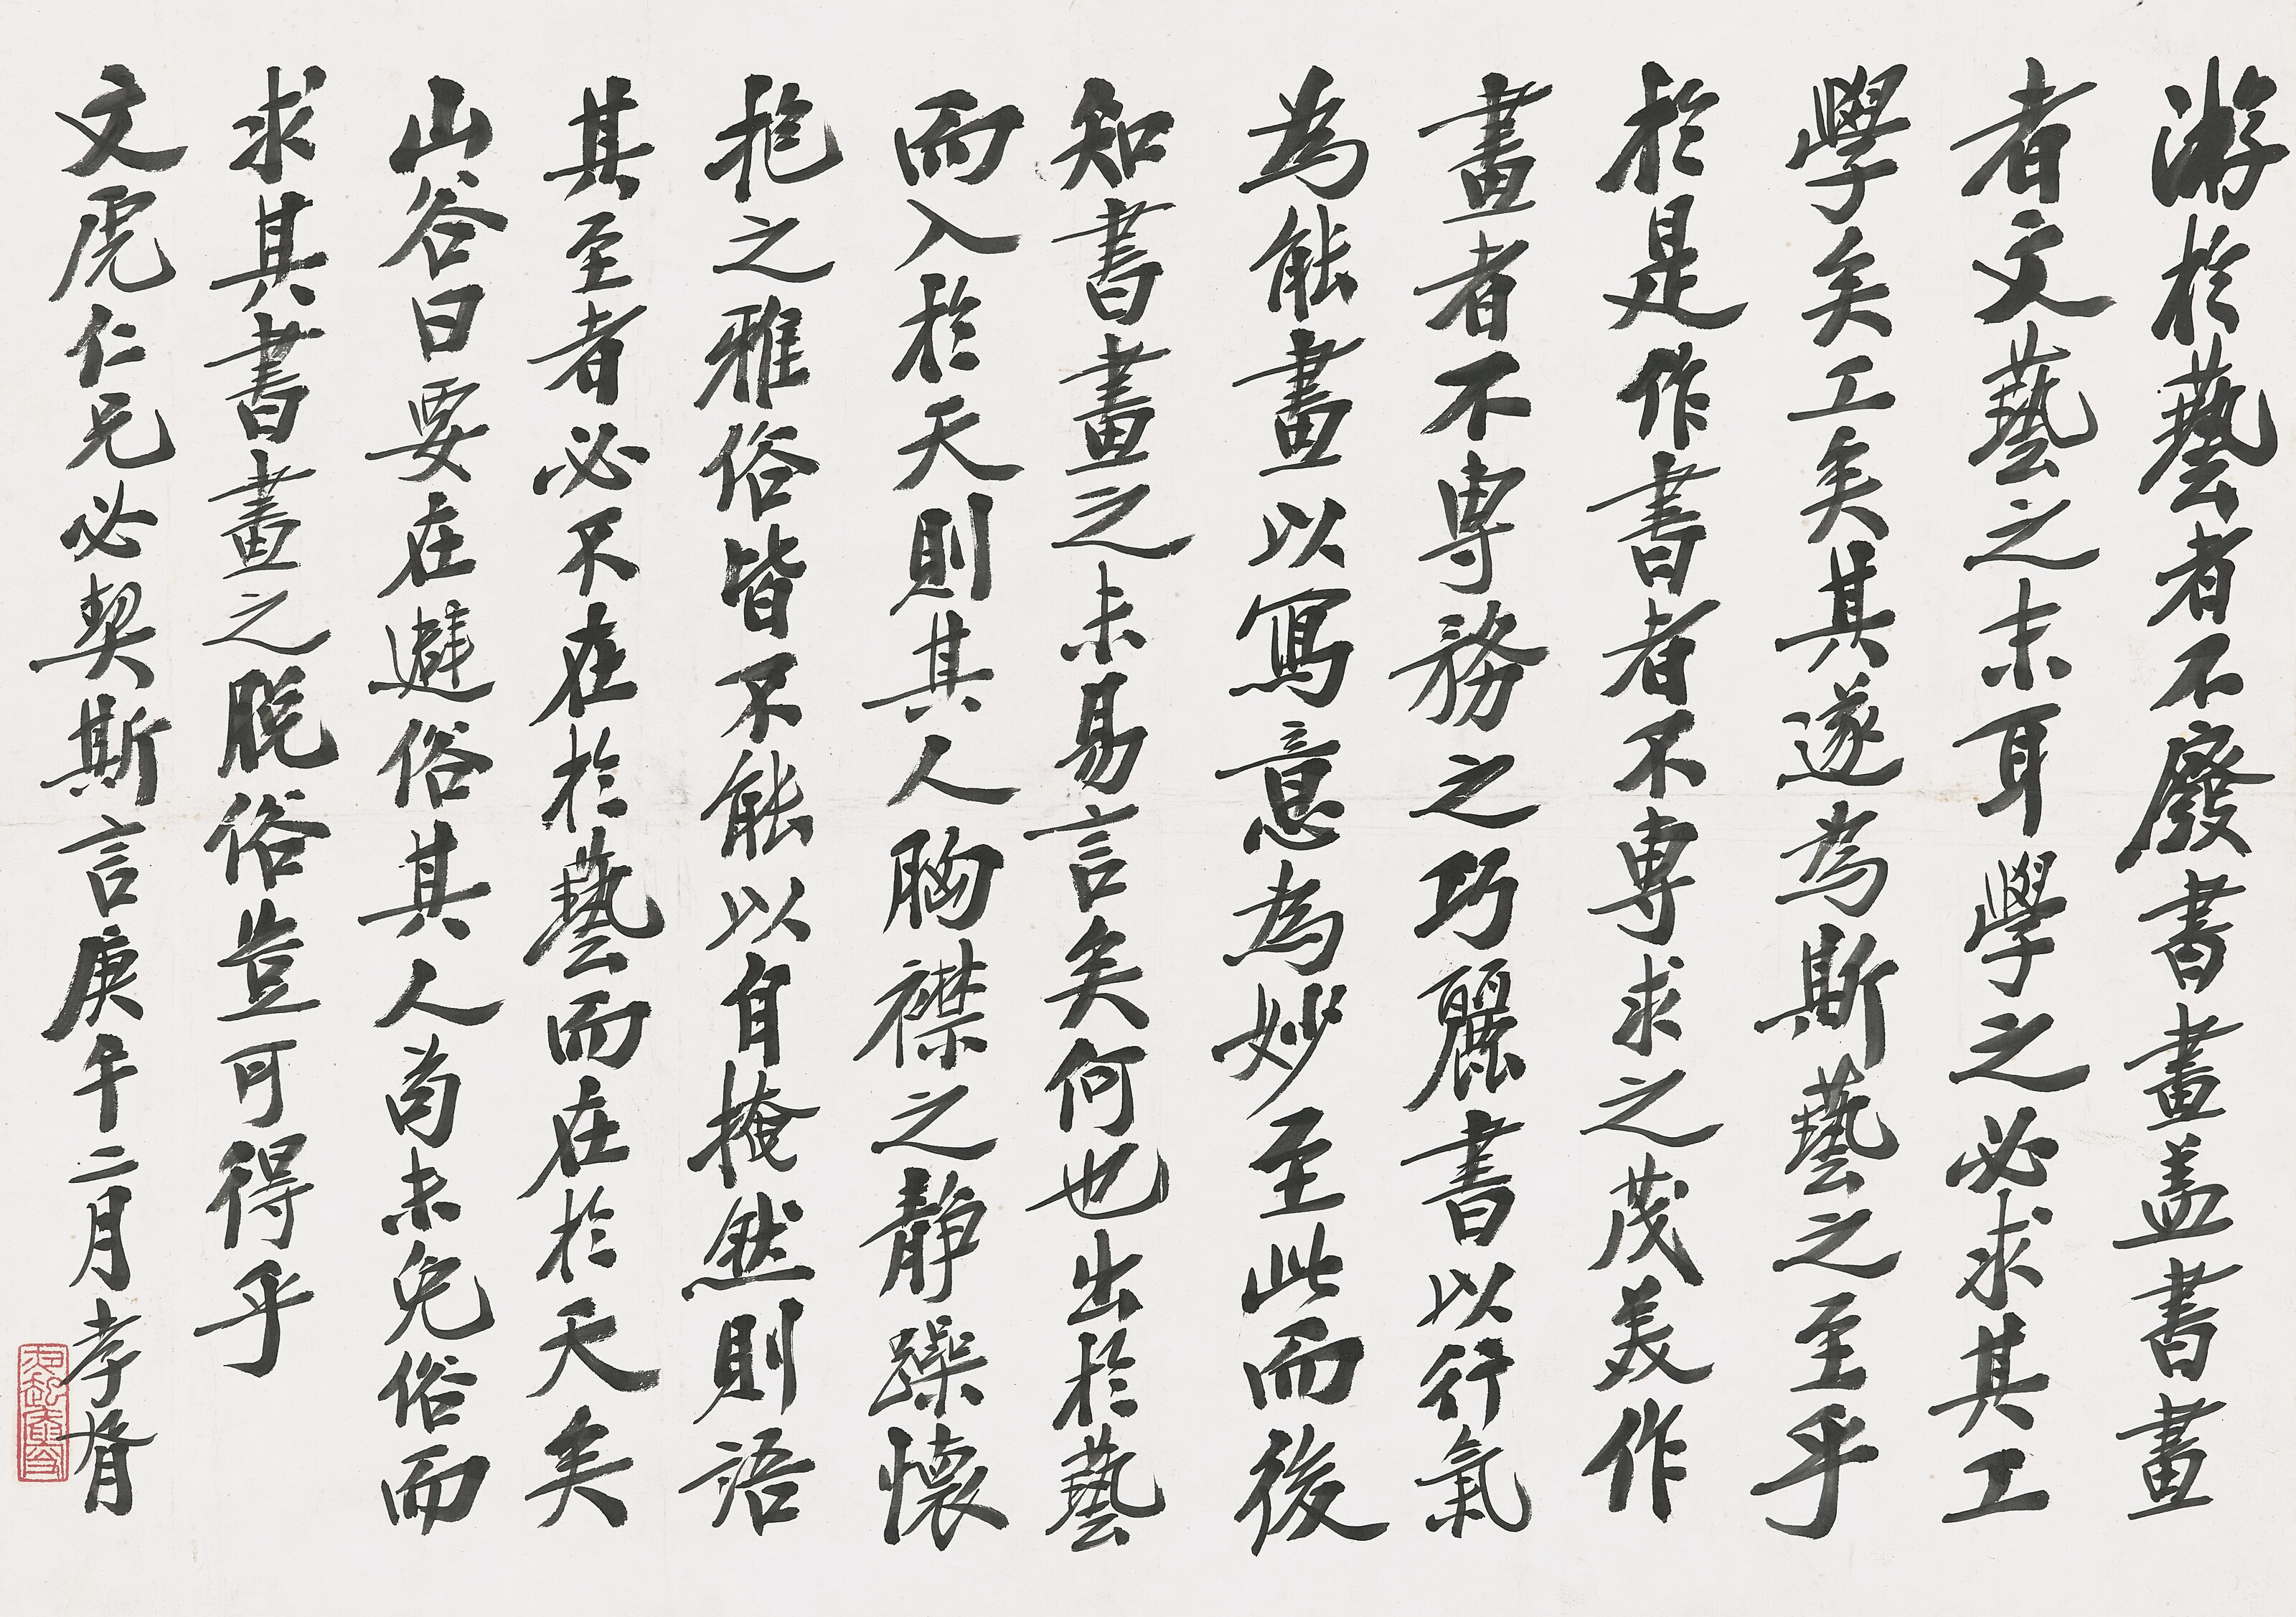 游於藝者不廢書畫盖書畫
者文藝之末耳學之必求其工
學矣工矣其遂為斯藝之至乎
於是作書者不專求之茂美作
畫者不專務之巧麗書以行氣
為能畫以寫意為妙至此而後
知書畫之未易言矣何也出於藝
而入於天則其人胸襟之靜躁懷
抱之雅俗皆不能以自掩然則語
其至者必不在於藝而在於天矣
山谷曰要在避俗其人苟未免俗而
求其書畫之脫俗豈可得乎
文虎仁兄必契斯言庚午二月孝胥